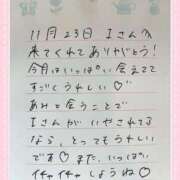 11月23日 Iさんへ
来てくれてありがとう!
今月はいっぱい会えてて
すごくうれしい♡
あみと会うことで
Iさんがいやされてる
なら、とってもうれしい
です♡また、いっぱい
イチャイチャしようね♡